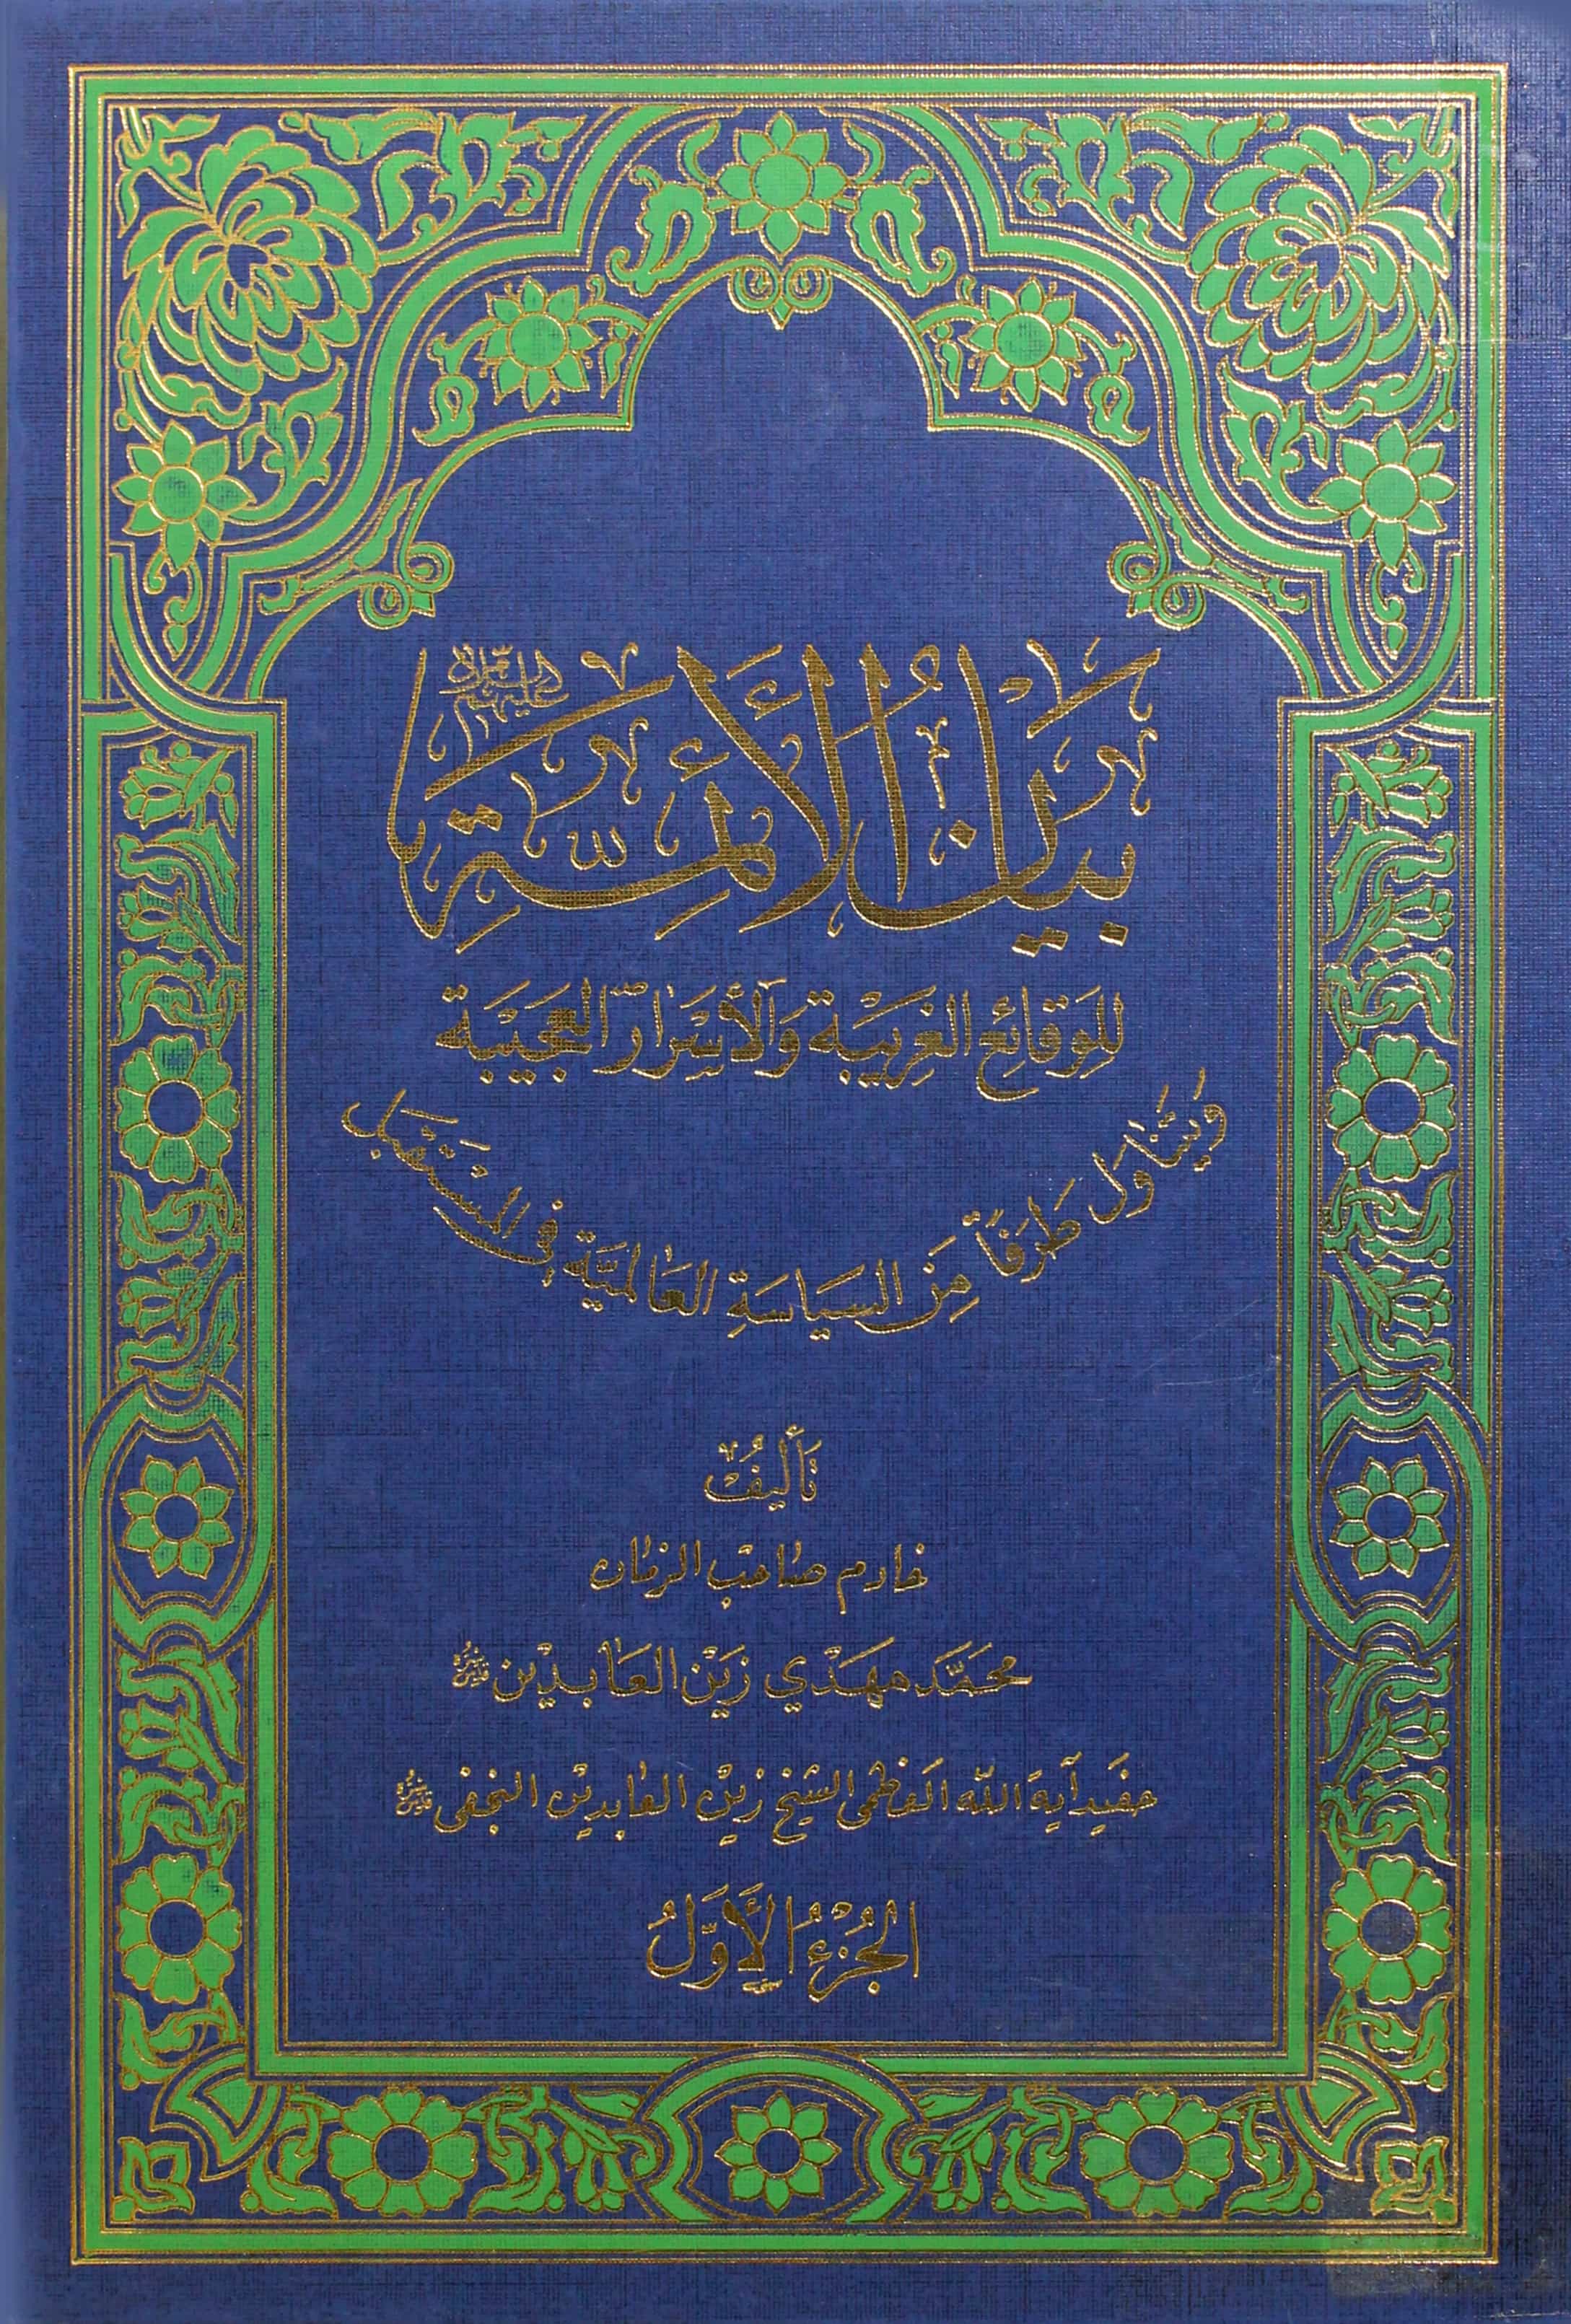 بَيَانُ الْأَئِمَّةِ عليهم السلام
لِلْوَقائِعِ الغَرِيبَةِ وَالأَسْرَارِ العَجِيبَةِ
وَيَتَنَاوَلُ طَرَفًا مِنَ السِّيَاسَةِ العَالَمِيَّةِ فِي المُسْتَقْبَلِ
تأليفُ
خادم صاحب الزمان
محمَّد مهدي زين العابدين قدس سره
حفيد آية الله العظمى الشيخ زين العابدين النجفي قدس سره
الجُزْءُ الأَوَّلُ